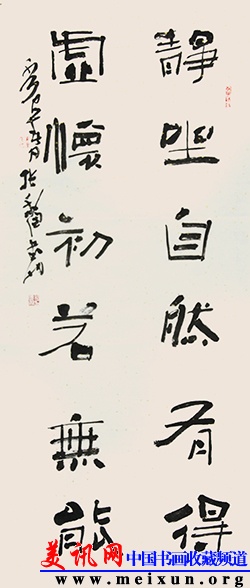 靜坐自然有得
虛懷初若無能
美讯网 中国书画收藏频道
www.meixun.org